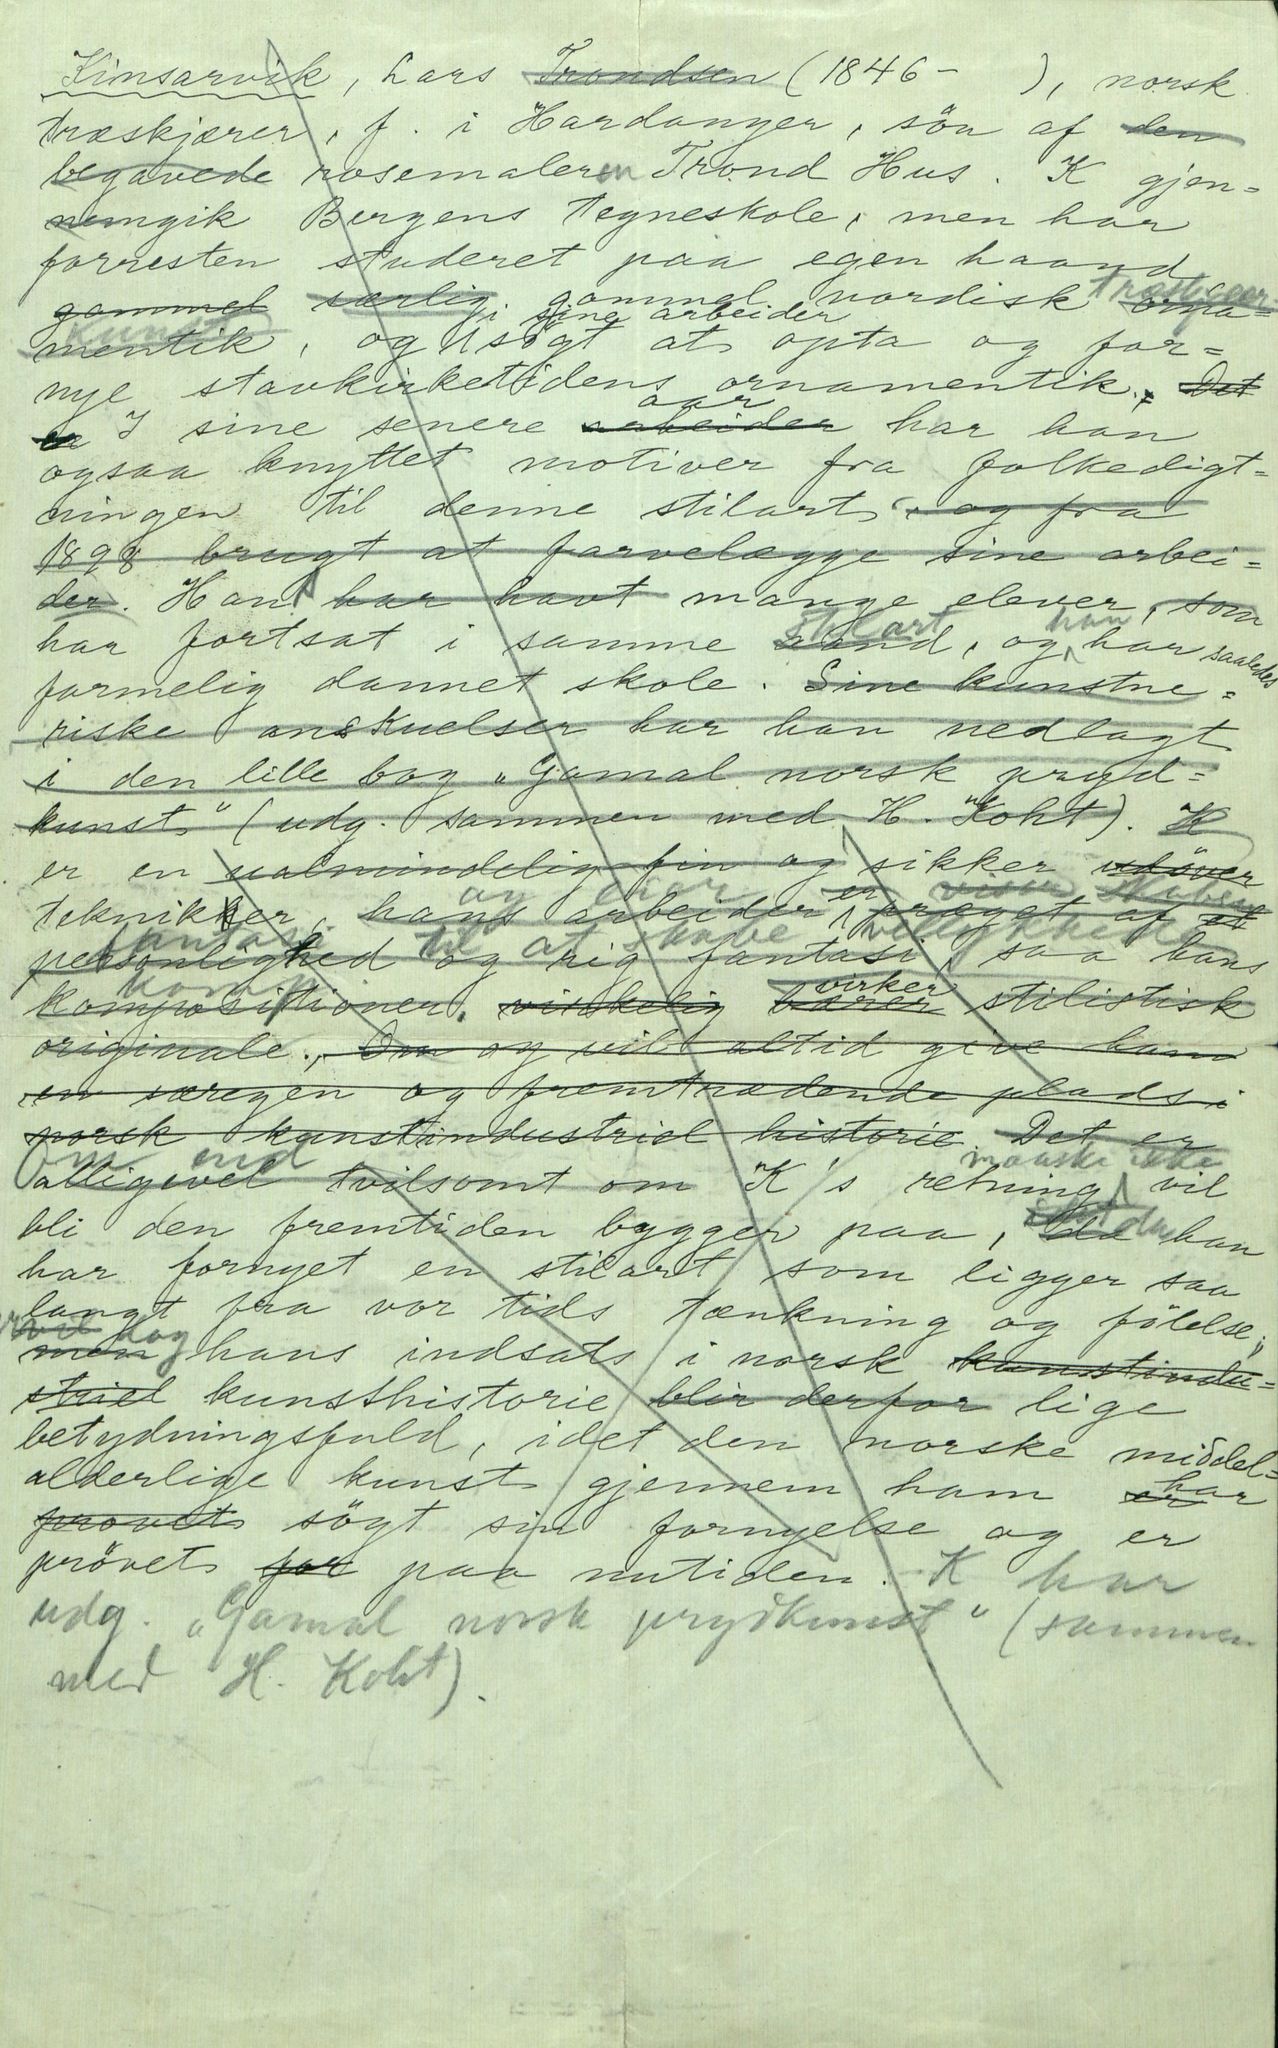 Kinsarvik, Lars Trondsen (1846-      ), norsk
træskjærer, f. i Hardanger, sön af den
begavede rosemaleren Trond Hus. K gjen=
nemgik Bergens tegneskole, men har
forresten studeret paa egen haand
gammel særlig gammel nordisk orna=
kunst i sine arbeider
mentik, og sögt at opta og for=
nye stavkirketidens ornamentik. Det
er I sine senere arbeider aar har han
ogsaa knyttet motiver fra folkedigt=
ningen til denne stilart, og fra
1898 brugt at farvelægge sine arbei=
der. Han har havt mange elever, som
stilart han
har fortsat i samme aand, og har saaledes
formelig dannet skole. Sine kunstne=
riske anskuelser har han nedlagt
i den lille bog „Gamal norsk pryd=
kunst" (udg. sammen med H. Koht). K
er en ualmindelig fin og sikker udöver
og er
tekniker, hans arbeider præget af et
fantasi til at skabe
personlighed og rig fantasi, saa hans
komp virker
kompositioner. virkelig bærer stilistisk
originale., Om og vil altid give ham
en særegen og fremtrædende plads i
norsk kunstindustriel historie. Det er
Om end maaske ikke
alligevel tvilsomt om K's retning vil
bli den fremtiden bygger paa, da han
har fornyet en stilart som ligger saa
langt fra vor tids tænkning og fölelse,
vil dog
men hans indsats i norsk kunstindu=
striel kunsthistorie blir derfor lige
betydningsfuld, idet den norske middel=
alderlige kunst gjennem ham er har
prövet sögt sin fornyelse og er
prövet for paa nutiden. K har
udg. „Gamal norsk prydkunst" (sammen
med H. Koht).